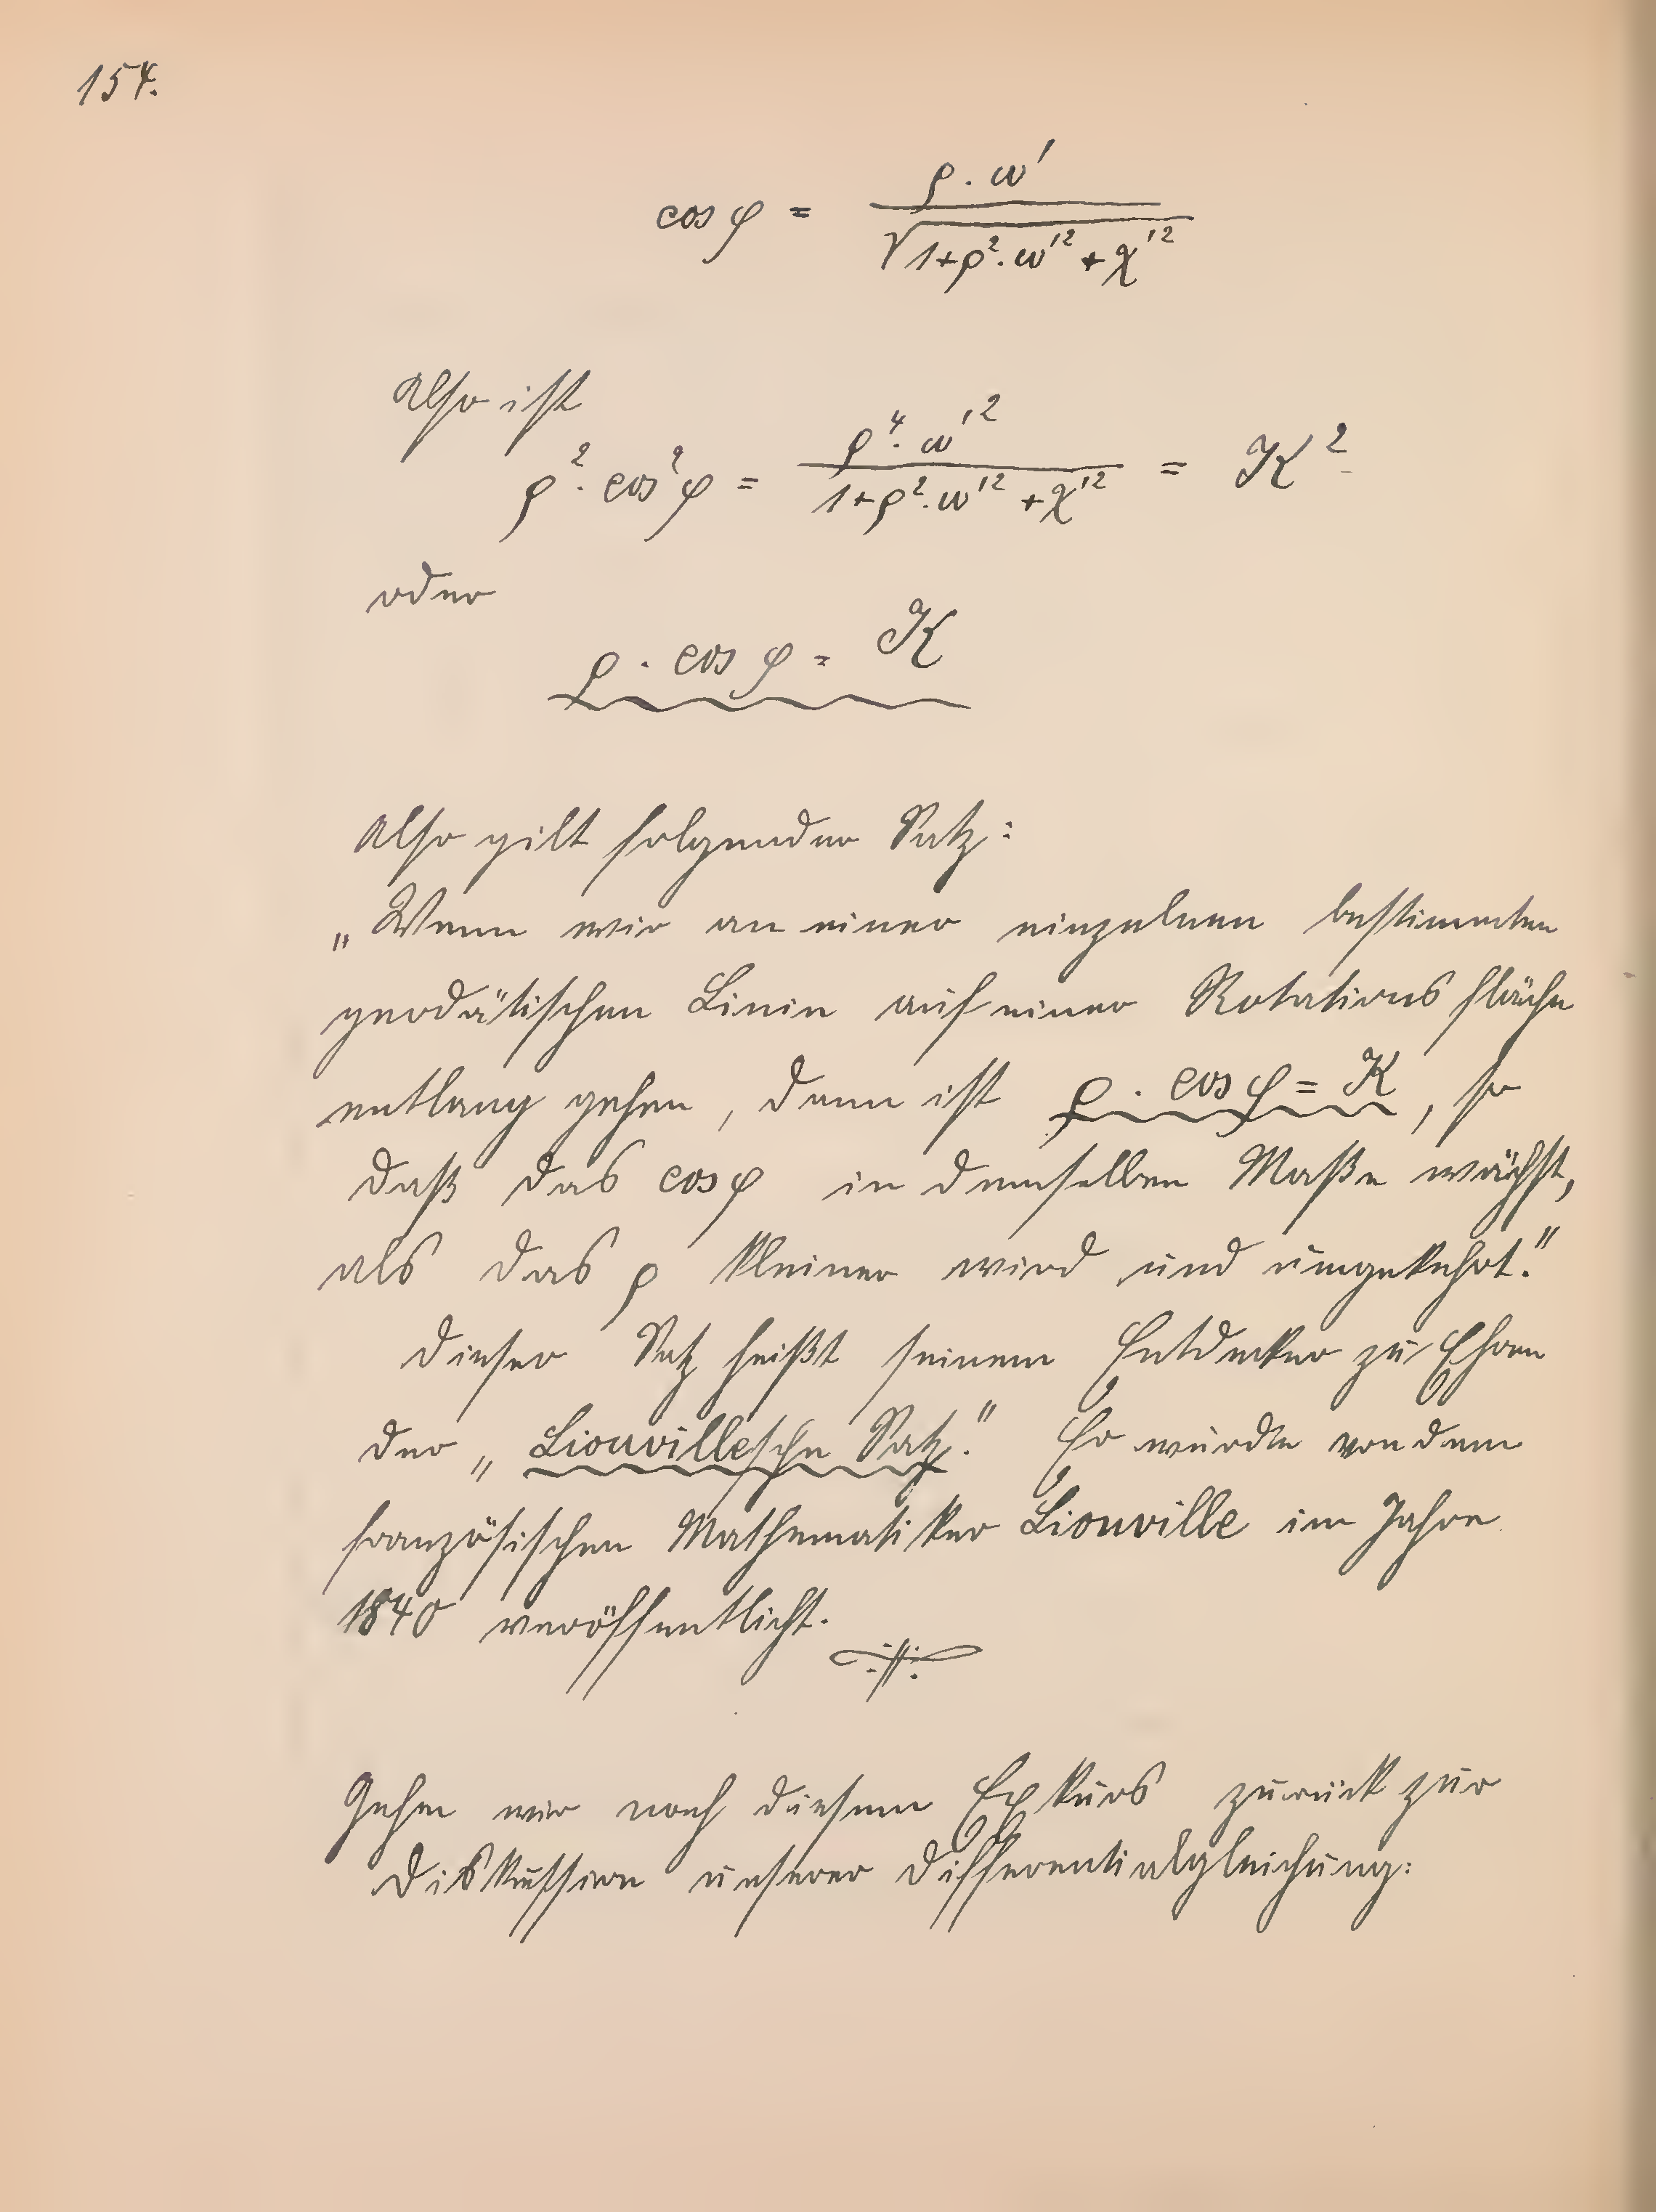 154.
cos φ = ρ · ω′ / √1+ρ²·ω′² + χ′²
Also ist
ρ² · cos² φ = ρ⁴ · ω′² / 1+ρ²·ω′² + χ′² = K²
oder
ρ · cos φ = K
Also gilt folgender Satz:
„Wenn wir an einer einzelnen bestimmten
geodätischen Linie auf einer Rotationsfläche
entlang gehen, dann ist ρ · cos φ = K, so
daß das cos φ in demselben Maße wächst,
als das ρ kleiner wird und umgekehrt."
Dieser Satz heißt seinem Entdecker zu Ehren
der „Liouvillesche Satz." Er wurde von dem
französischen Mathematiker Liouville im Jahre
1840 veröffentlicht.
Gehen wir nach diesem Exkurs zurück zur
Diskussion unserer Differentialgleichung: